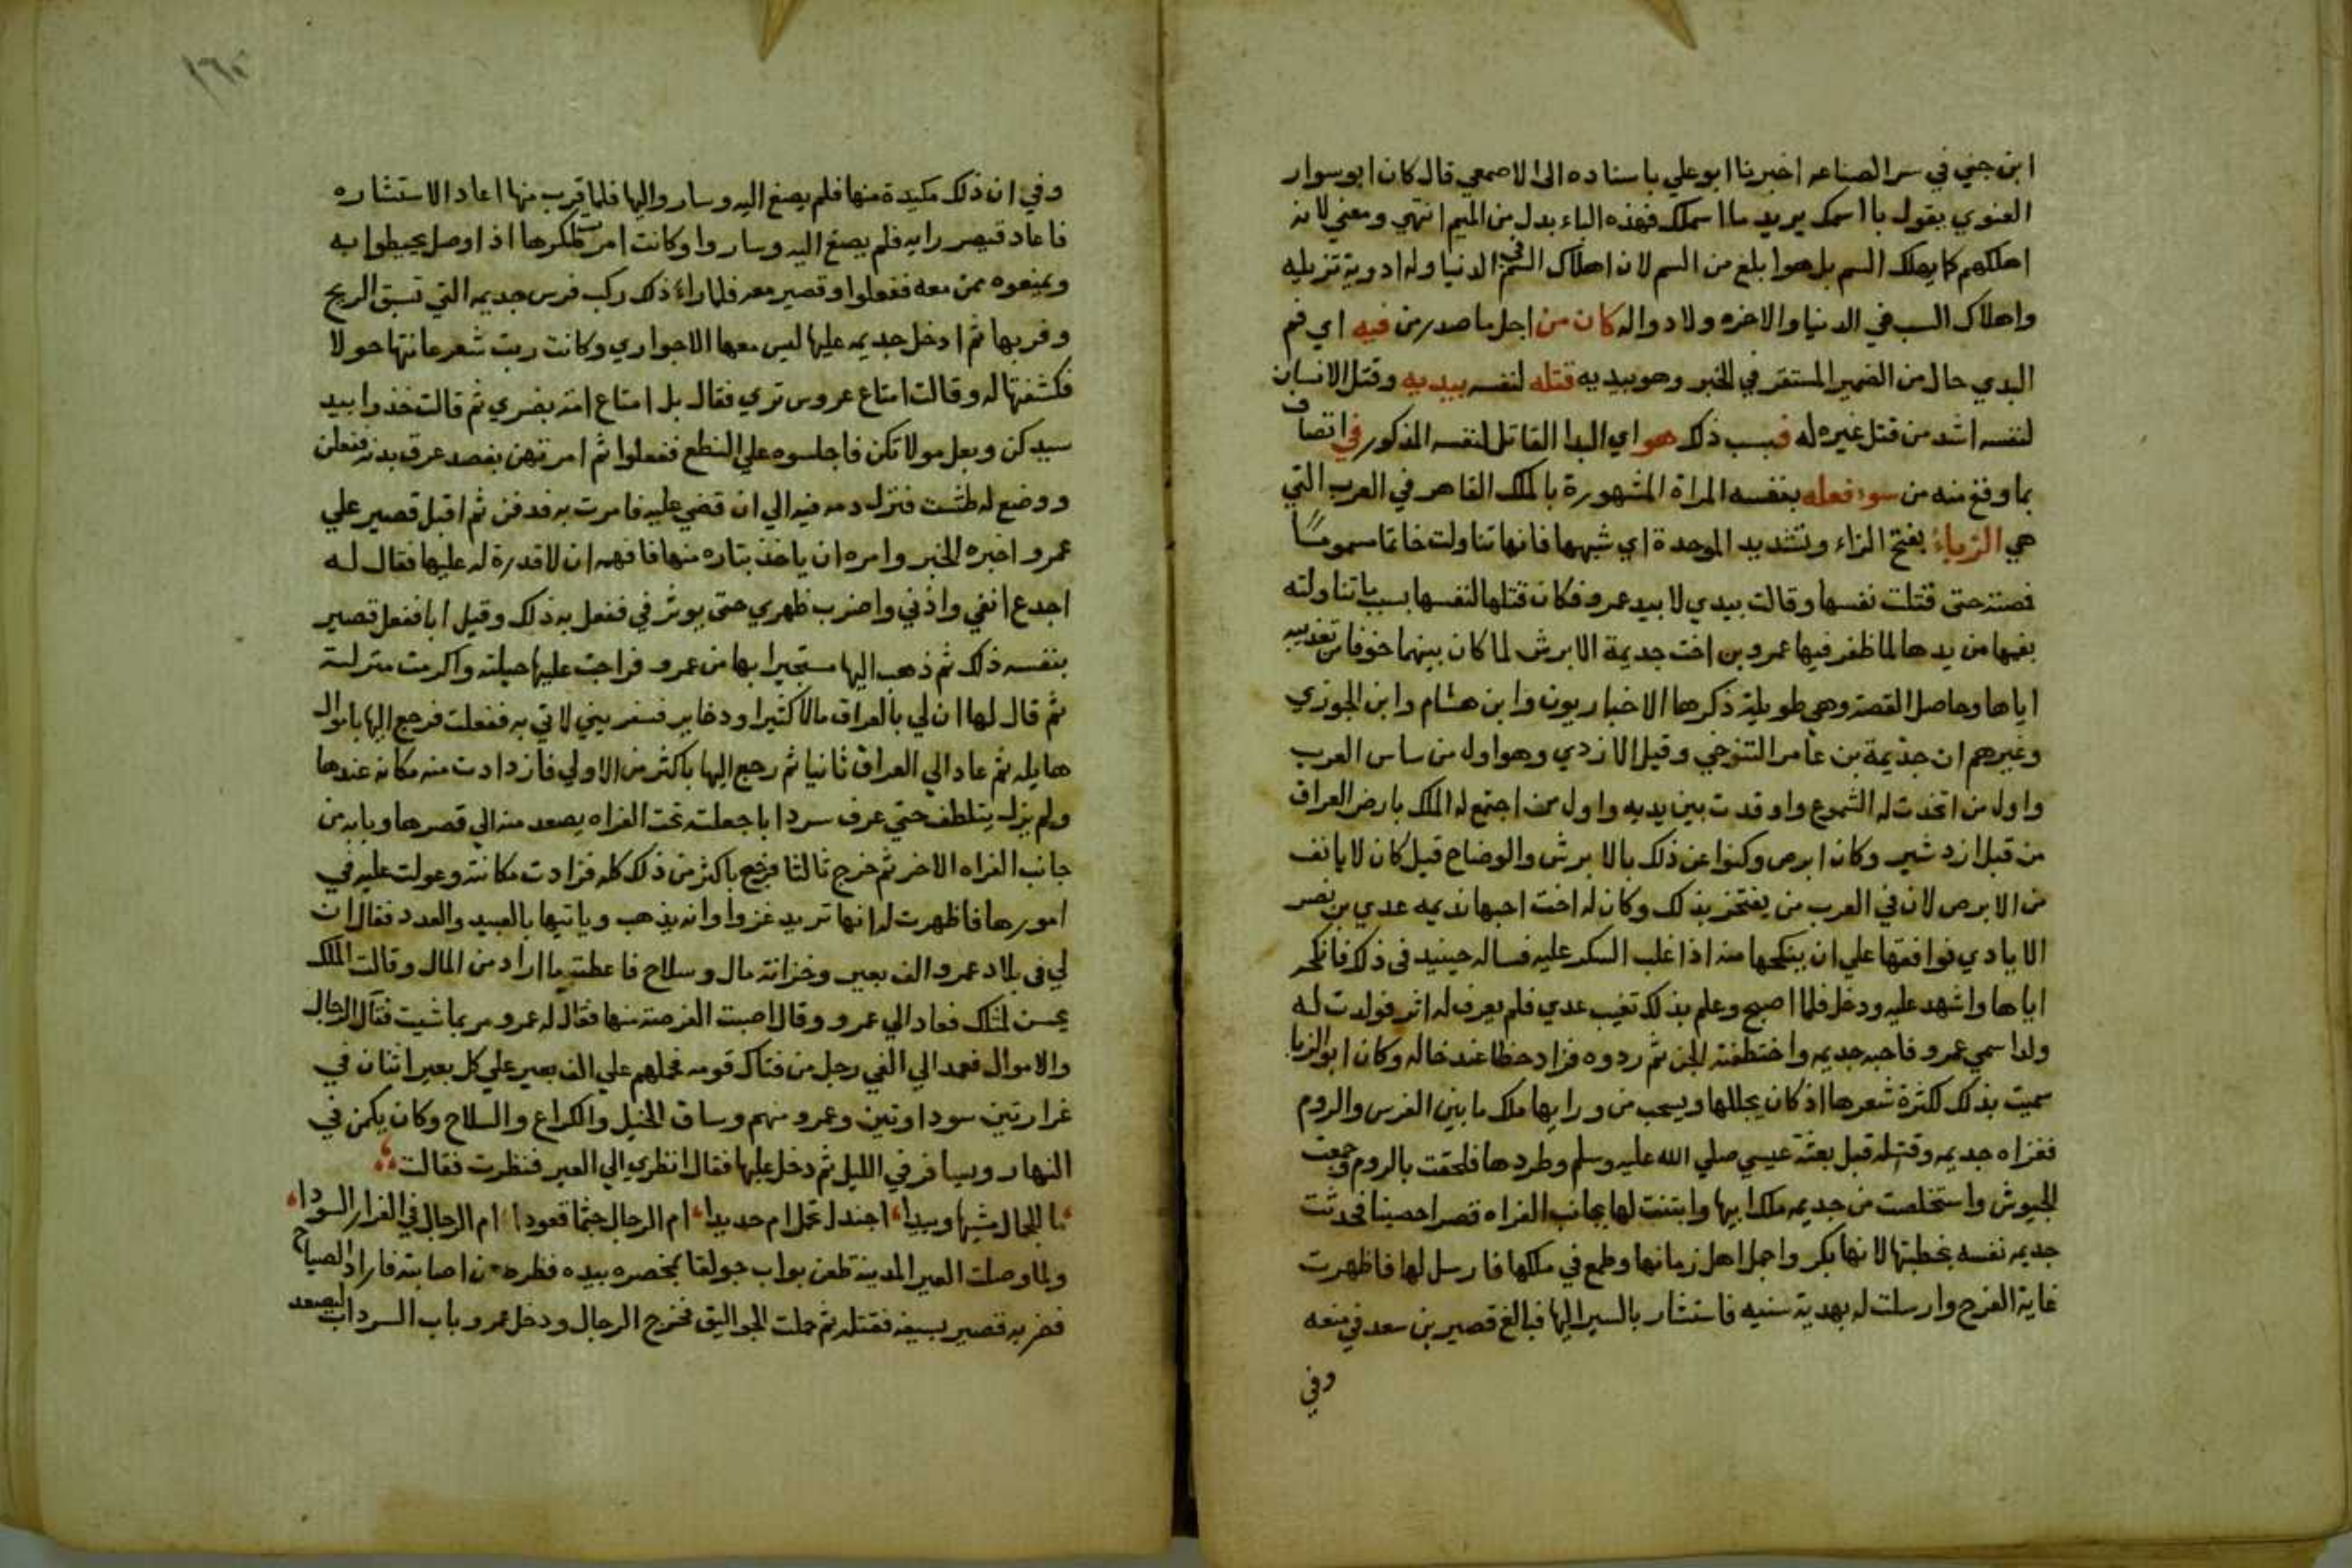 ابن جني في سر الصناعه اخبرنا ابو علي باسناده الى الاصمعي قال كان ابو سوار
الغنوي يقول باا سمك يريد ماا سمك فهذه الباء بدل من الميم انتهي ومعني لانه
اهلكهم كايهلك السم بل هوا بلغ من السم لان اهلاك السم في الدنيا وله ادوية تزيله
واهلاك السب في الدنيا والاخره ولا دواله كان من اجل ما صدر من فيه اي فم
البدي حال من الضمير المستقر في الخبر وهو بيديه قتله لنفسه بيديه وقتل الانسان
لنفسه اشد من قتل غيره له فبسب ذلك هو اي البدا القاتل لنفسه المذكور في اتصاف
بما وقع منه من سوء فعله بنفسه المراة المشهورة بالملك القاهر في العرب التي
هي الزباء بفتح الزاء وتشديد الموحدة اي شبهها فانها تناولت خاتما مسموما
فصته حتى قتلت نفسها وقالت بيدي لا بيد عمرو فكان قتلها لنفسها بسب ما تناولته
بفيها من يدها لما ظفر فيها عمرو بن اخت جديمة الابرش لما كان بينهما خوفا من تعذيبه
اياها وحاصل القصة وهي طويلة ذكرها الاخباريون وابن هشام وابن الجوزي
وغيرهم ان جذيمة بن عامر التنوخي وقيل الازدي وهو اول من ساس العرب
واول من اتخذت له الشموع واوقدت بين يديه واول من اجتمع له الملك بارض العراق
من قبل ازدشير وكان ابرص وكنوا عن ذلك بالابرش والوضاح قيل كان لا يانف
من الابرص لان في العرب من يفتخر بذلك وكان له اخت احبها نديمه عدي بن نصر
الايادي فوافقها علي ان ينكحها منه اذا غلب السكر عليه فساله حينيد في ذلك فانكحه
اياها واشهد عليه ودخل فلما اصبح وعلم بذلك تغيب عدي فلم يعرف له اثر فولدت له
ولدا سمي عمرو فاحبه جديمه واختطفته الجن ثم ردوه فزاد حظا عند خاله وكان ابو الزبا
سميت بذلك لكثرة شعرها اذ كان يجللها ويسحب من ورايها ملك ما بين الفرس والروم
فغزاه جديمه وقتله قبل بعثة عيسي صلي الله عليه وسلم وطردها فلحقت بالروم وجمعت
الجيوش واستخلصت من جديمه ملك ابيها وابتنت لها بجانب الفراه قصرا حصينا فحدثت
جديمه نفسه بخطبتها لانها بكر واجمل اهل زمانها وطمع في ملكها فارسل لها فاظهرت
غاية الفرح وارسلت له بهدية سنيه فاستشار بالسير اليها فبالغ قصير بن سعد في منعه
وفي
١٦٥
وفي ان ذلك مكيدة منها فلم يصغ اليه وسار واليها فلما قرب منها اعاد الاستشاره
فاعاد قيصر رايه فلم يصغ اليه وساروا وكانت امرت عسكرها اذا وصل يحيطوا به
ويمنعوه ممن معه ففعلوا وقصير معه فلما راء ذلك ركب فرس جديمه التي تسبق الريح
وفر بها ثم ادخل جديمه عليها ليس معها الا جواري وكانت ربت شعر عانتها حولا
فكشفتها له وقالت امتاع عروس تري فقال بل امتاع امة بضري ثم قالت خذوا بيد
سيدكن وبعل مولاتكن فاجلسوه علي النطع ففعلوا ثم امرتهن بفصد عرق بدنه ففعلن
ووضع له طشت فنزل دمه فيه الي ان قضي عليه فامرت به فدفن ثم اقبل قصير علي
عمرو اخبره الخبر وامره ان ياخذ بتاره منها فافهمه ان لا قدرة له عليها فقال له
اجدع انفي واذني واضرب ظهري حتى يوثر في ففعل به ذلك وقيل ابا ففعل قصير
بنفسه ذلك ثم ذهب اليها مستجيرا بها من عمرو فراجت عليها حيلته واكرمت منزلته
ثم قال لها ان لي بالعراق مالا كثيرا ودخاير فسفريني لاتي به ففعلت فرجع اليها باموال
هايله ثم عاد الي العراق ثانيا ثم رجع اليها باكثر من الاولي فازدادت منه مكانه عندها
ولم يزل يتلطف حتي عرف سردابا جعلته تحت الفراه يصعد منه الي قصرها وبابه من
جانب الفراه الاخر ثم خرج ثالثا فرجع باكثر من ذلك كله فزادت مكانته وعولت عليه في
امورها فاظهرت له انها تريد غزوا وانه يذهب وياتيها بالعبيد والعدد فقال ان
لي في بلاد عمرو الف بعير وخزانة مال وسلاح فاعطته ما اراد من المال وقالت الملك
يحسن لمثلك فعاد الي عمرو وقال اصبت الفرصة منها فقال له عمرو مر بما شيت فقال الرجال
والاموال فعمد الي الفي رجل من فتاك قومه فحملهم علي الف بعير علي كل بعير اثنان في
غرارتين سوداوتين وعمرو منهم وساق الخيل والكراع والسلاح وكان يكمن في
النهار ويسافر في الليل ثم دخل عليها فقال انظري الي العير فنظرت فقالت
ما للجمال مشيها وييدا اجندلا تحمل ام حديدا ام الرجال جثما قعودا ام الرجال في الغرار السودا
ولما وصلت العير المدينة طعن بواب جولقا بمخصره بيده فظره من اصابته فاراد الصياح
فضربه قصير بسيفه فقتله ثم حلت الجواليق فخرج الرجال ودخل عمرو باب السرداب ليصعد